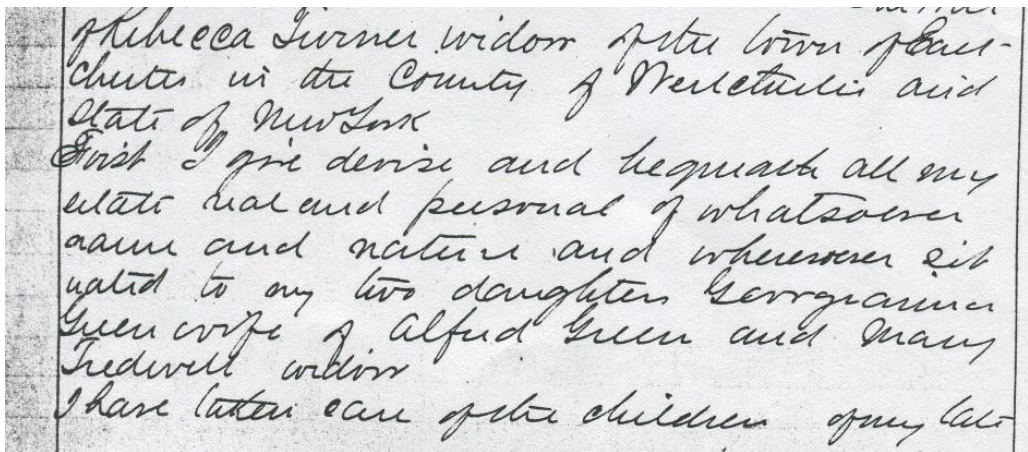 of Rebecca Turner widow of the town of East-
chester in the County of Westchester and
State of New York
First I give devise and bequeath all my
estate real and personal of whatsoever
name and nature and wheresoever sit
uated to my two daughters Georgianna
Green wife of Alfred Green and Mary
Tredwell widow
I have taken care of the children of my late